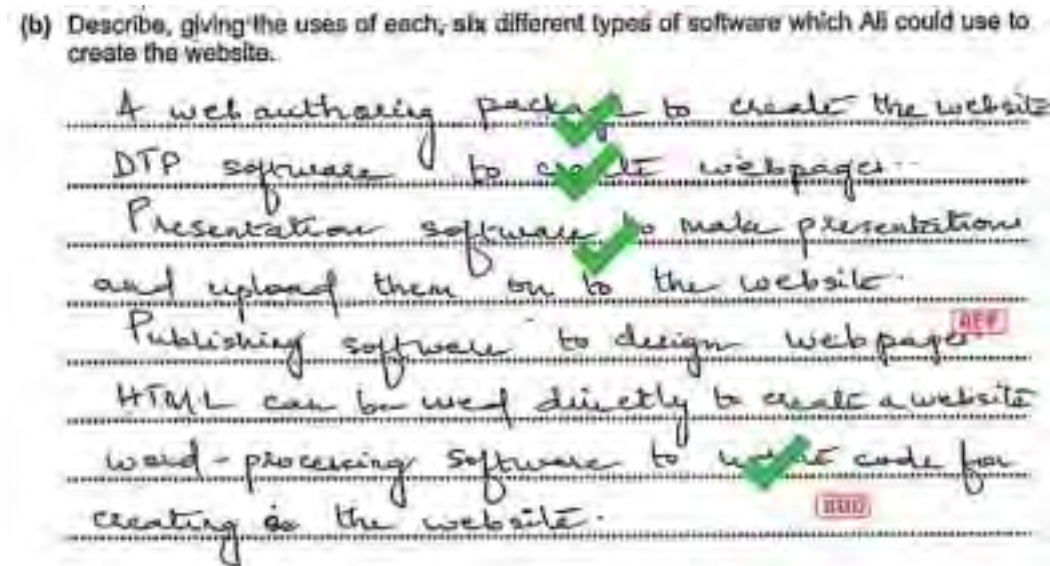 (b) Describe, giving the uses of each, six different types of software which Ali could use to
create the website.
A web authoring package to create the website
DTP software to create webpages.
Presentation software to make presentations
and upload them on to the website.
Publishing software to design webpages
REP
HTML can be used directly to create a website
word-processing software to write code for
creating the website.
BOD